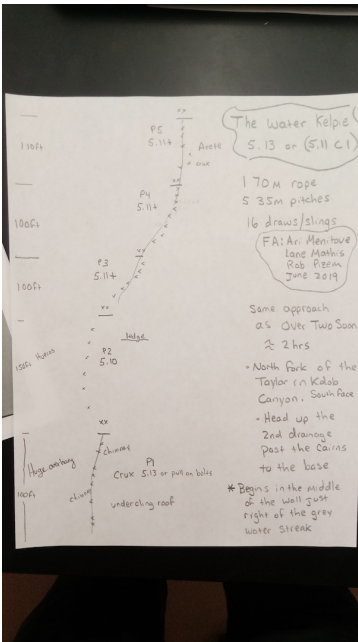 The Water Kelpie
5.13 or (5.11 C1)
1 70M rope
5 35M pitches
16 draws/slings
FA: Ari Menitove
Lane Mathis
Rob Pizem
June 2019
Same approach
as Over Two Soon
≈ 2hrs
• North Fork of the
Taylor in Kolob
Canyon, South Face
• Head up the
2nd drainage
past the cairns
to the base
* Begins in the middle
of the wall just
right of the grey
water streak
xx
P5
5.11+
Arete
crux
110ft
xx
P4
5.11+
100ft
xx
P3
5.11+
100ft
xx
ledge
P2
5.10
150ft
xx
chimney
P1
Crux 5.13 or pull on bolts
chimney
undercling roof
Huge overhang
100ft